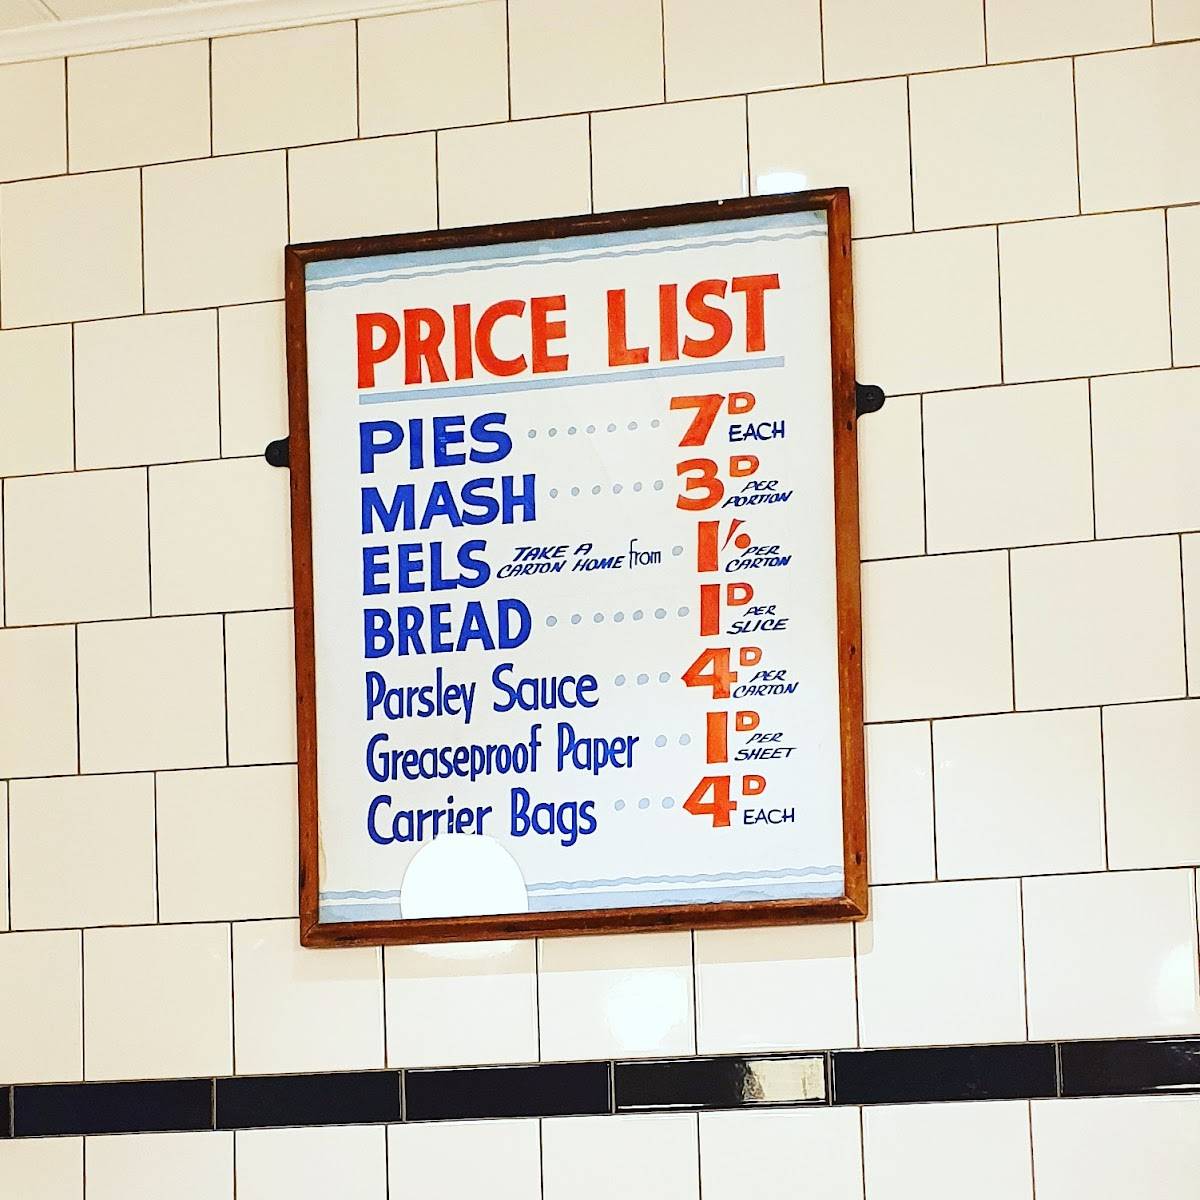 PRICE LIST
PIES ······· 7D EACH
MASH ······· 3D PER PORTION
EELS TAKE A CARTON HOME from · 1/• PER CARTON
BREAD ······· 1D PER SLICE
Parsley Sauce ···· 4D PER CARTON
Greaseproof Paper ·· 1D PER SHEET
Carrier Bags ···· 4D EACH